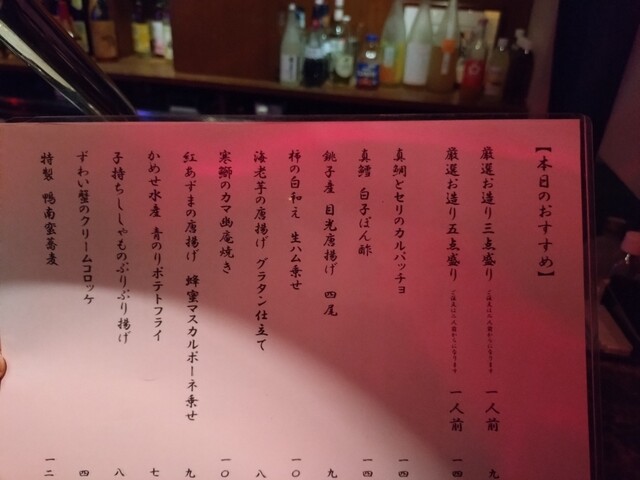 【本日のおすすめ】
厳選お造り三点盛り ご注文は二人前からになります 一人前 九
厳選お造り五点盛り ご注文は二人前からになります 一人前 一四
真鯛とセリのカルパッチョ 一四
真鱈 白子ぽん酢 一四
銚子産 目光唐揚げ 四尾 九
柿の白和え 生ハム乗せ 一〇
海老芋の唐揚げ グラタン仕立て 八
寒鰤のカマ幽庵焼き 一〇
紅あずまの唐揚げ 蜂蜜マスカルポーネ乗せ 九
かめせ水産 青のりポテトフライ 七
子持ちししゃものぷりぷり揚げ 八
ずわい蟹のクリームコロッケ 四
特製 鴨南蛮蕎麦 一二